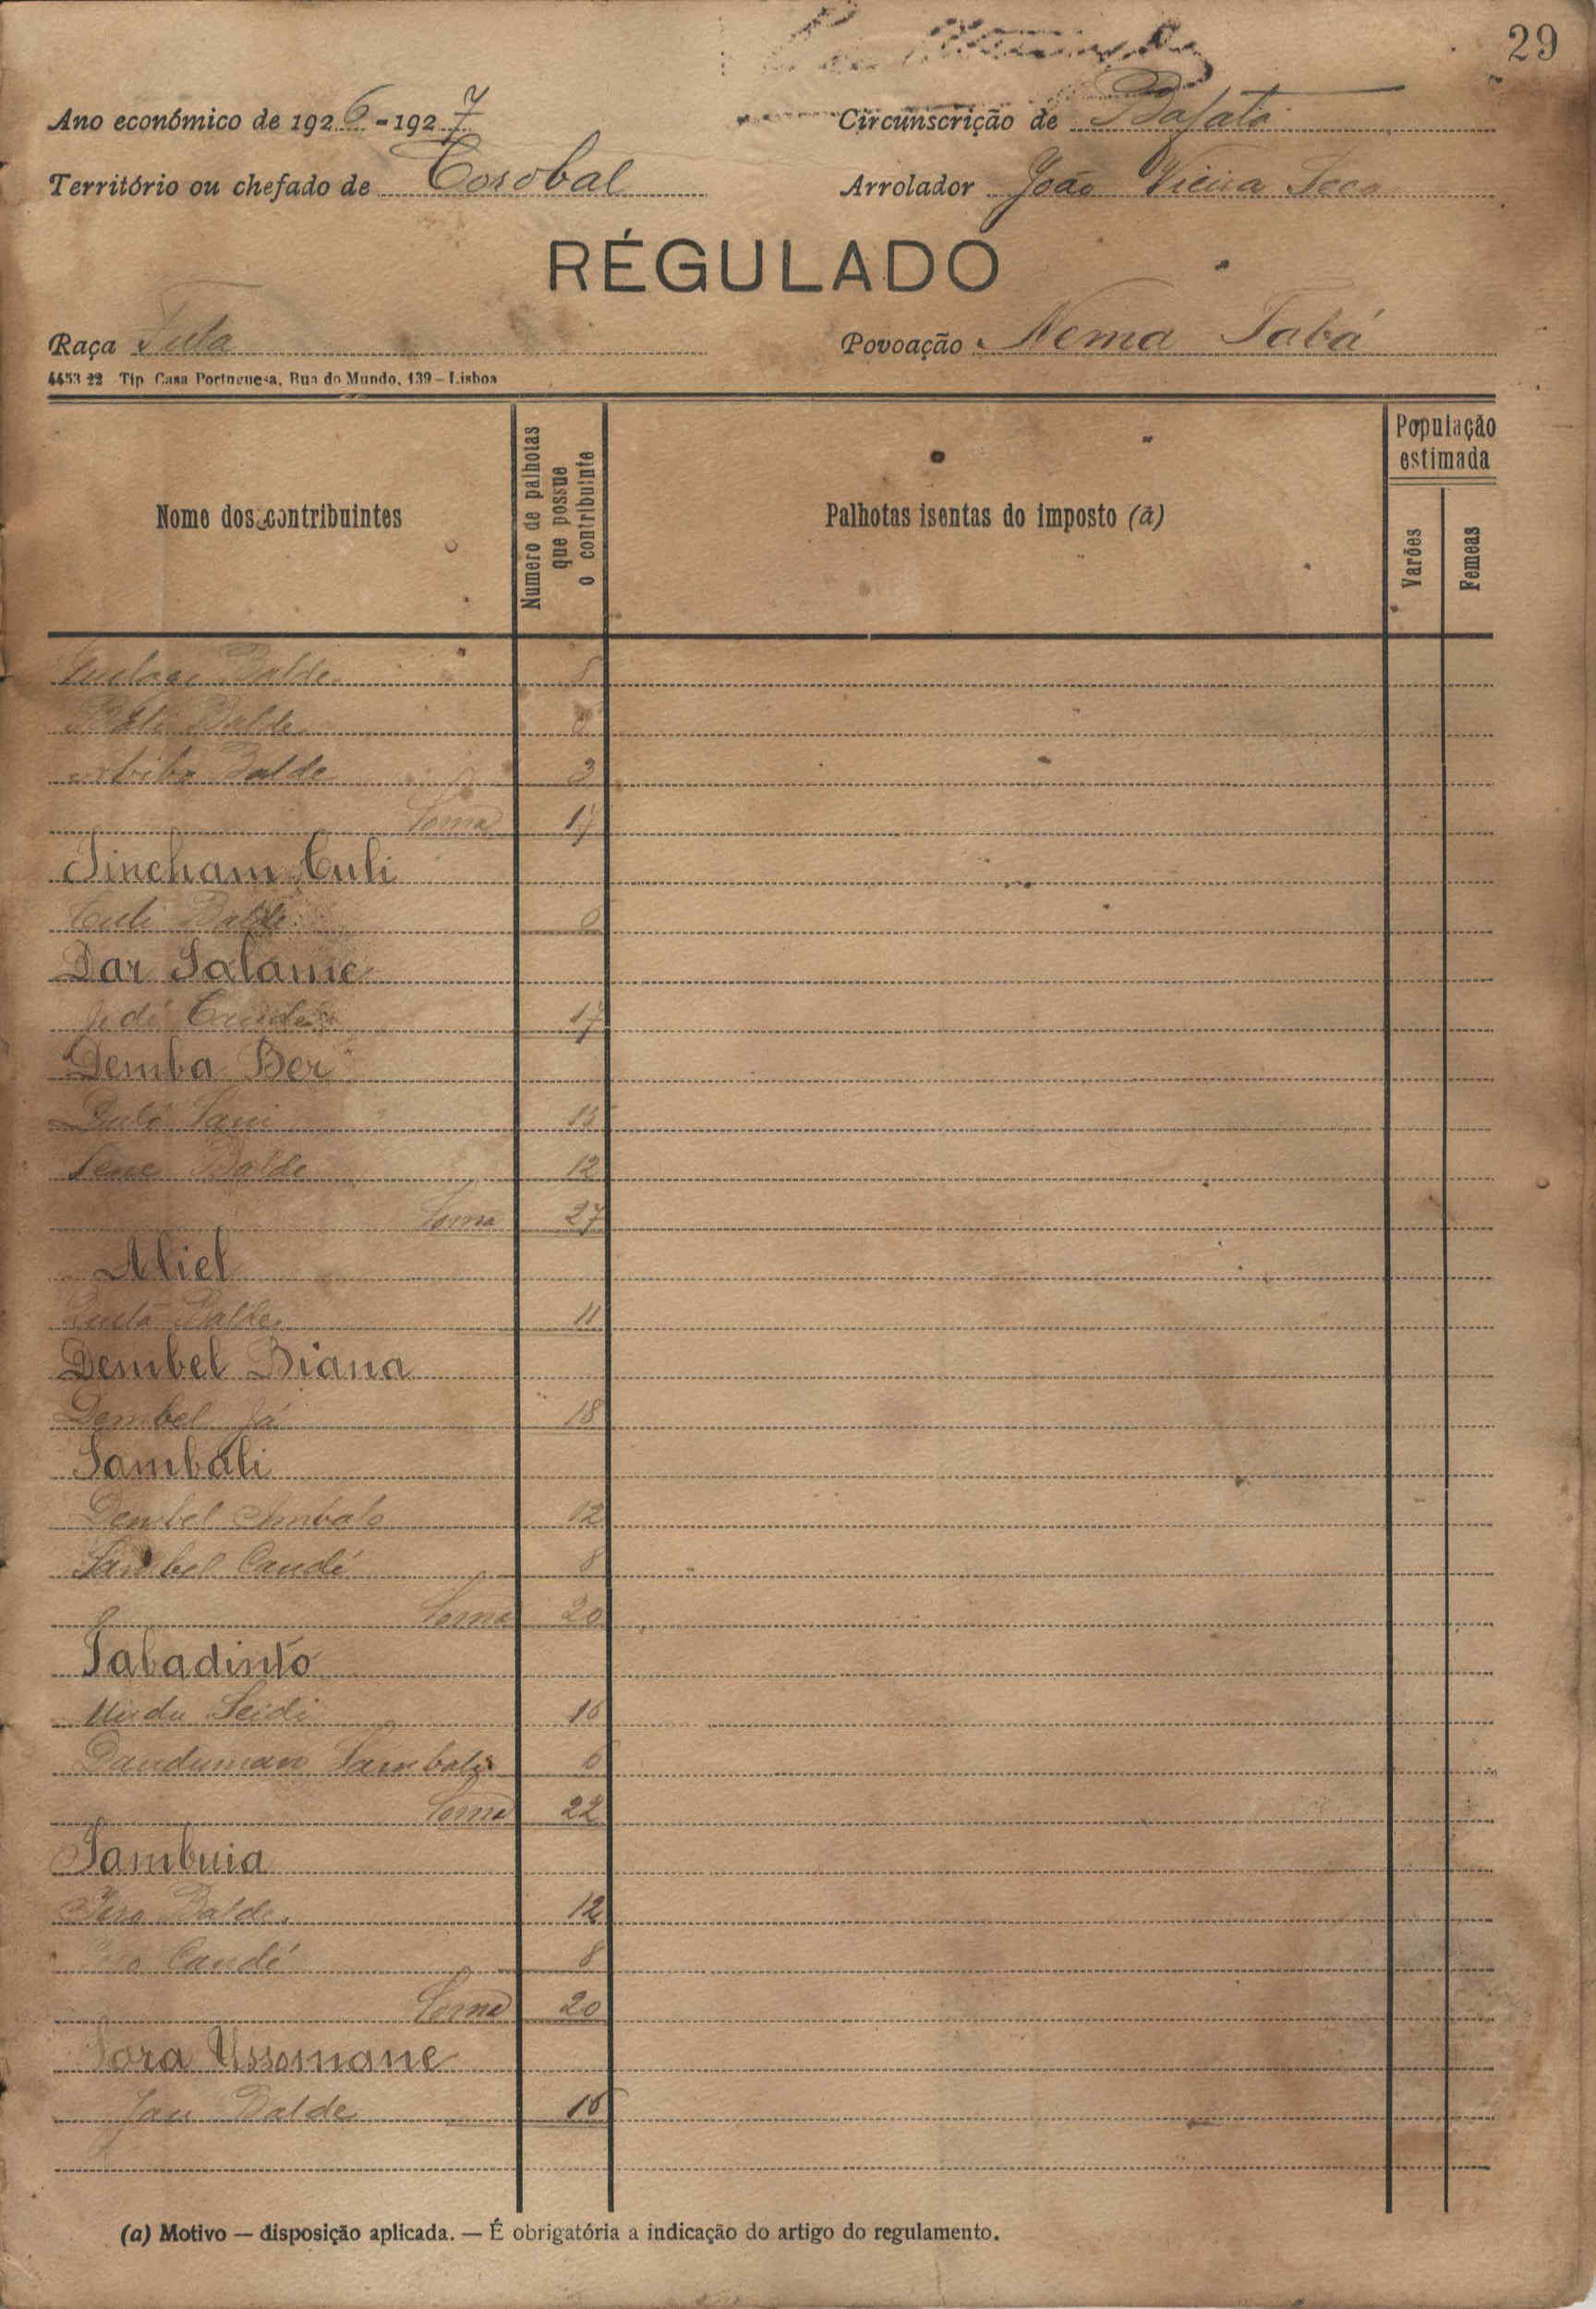 29
Ano económico de 1926-1927 Circunscrição de Bafatá
Território ou chefado de Corobal Arrolador João Vieira Seca
RÉGULADO
Raça Fula Povoação Nema Tabá
4453 22 Tip Casa Portuguesa, Rua do Mundo, 139 – Lisboa
Nome dos contribuintes
Numero de palhotas que possue o contribuinte
Palhotas isentas do imposto (a)
População estimada
Varões
Femeas
Balde 8
Balde 6
Balde 3
Soma 17
Sincham Culi
Culi Balde 6
Dar Salame
17
Demba Ber
15
Sene Balde 12
Soma 27
Aliel
Balde 11
Dembel Biana
Dembel Já 18
Sambali
Dembel Embalo 12
Sambel Candé 8
Soma 20
Sabadinto
Seidi 16
Danduman Sambali 6
Soma 22
Sambuia
Balde 12
Candé 8
Soma 20
Sora Ussomane
Jau Balde 16
(a) Motivo — disposição aplicada. — É obrigatória a indicação do artigo do regulamento.